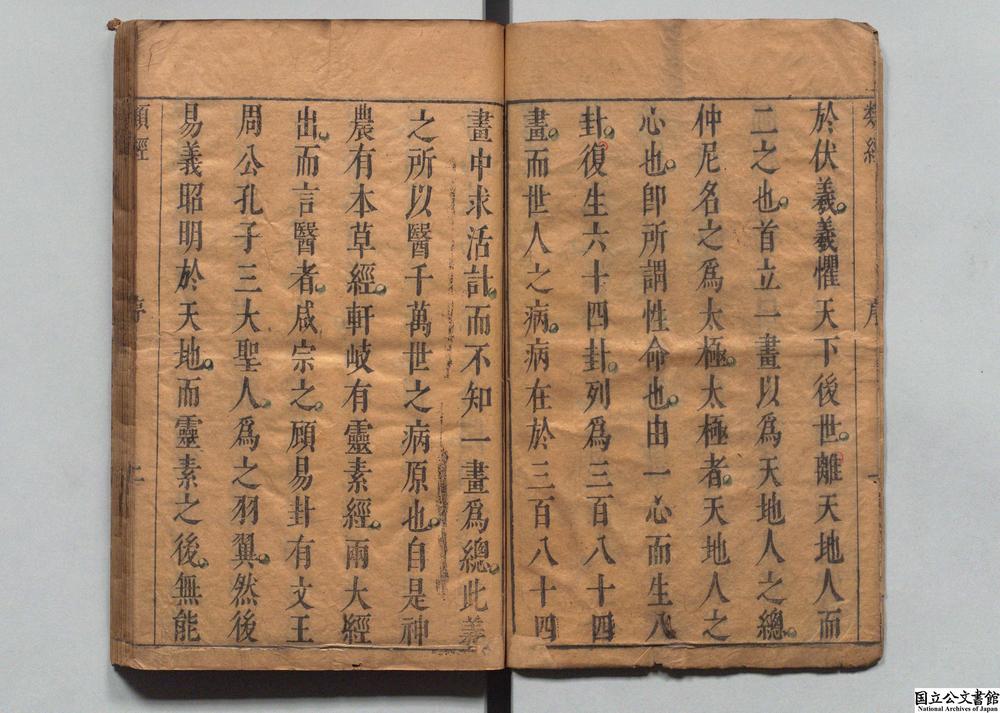 類經 序
於伏羲羲懼天下後世離天地人而
二之也首立一畫以爲天地人之總
仲尼名之爲太極太極者天地人之
心也即所謂性命也由一心而生八
卦復生六十四卦列爲三百八十四
畫而世人之病病在於三百八十四
畫中求活計而不知一畫爲總此羲
之所以醫千萬世之病原也自是神
農有本草經軒岐有靈素經兩大經
出而言醫者咸宗之顧易卦有文王
周公孔子三大聖人爲之羽翼然後
易義昭明於天地而靈素之後無能
類經 序 二
国立公文書館
National Archives of Japan